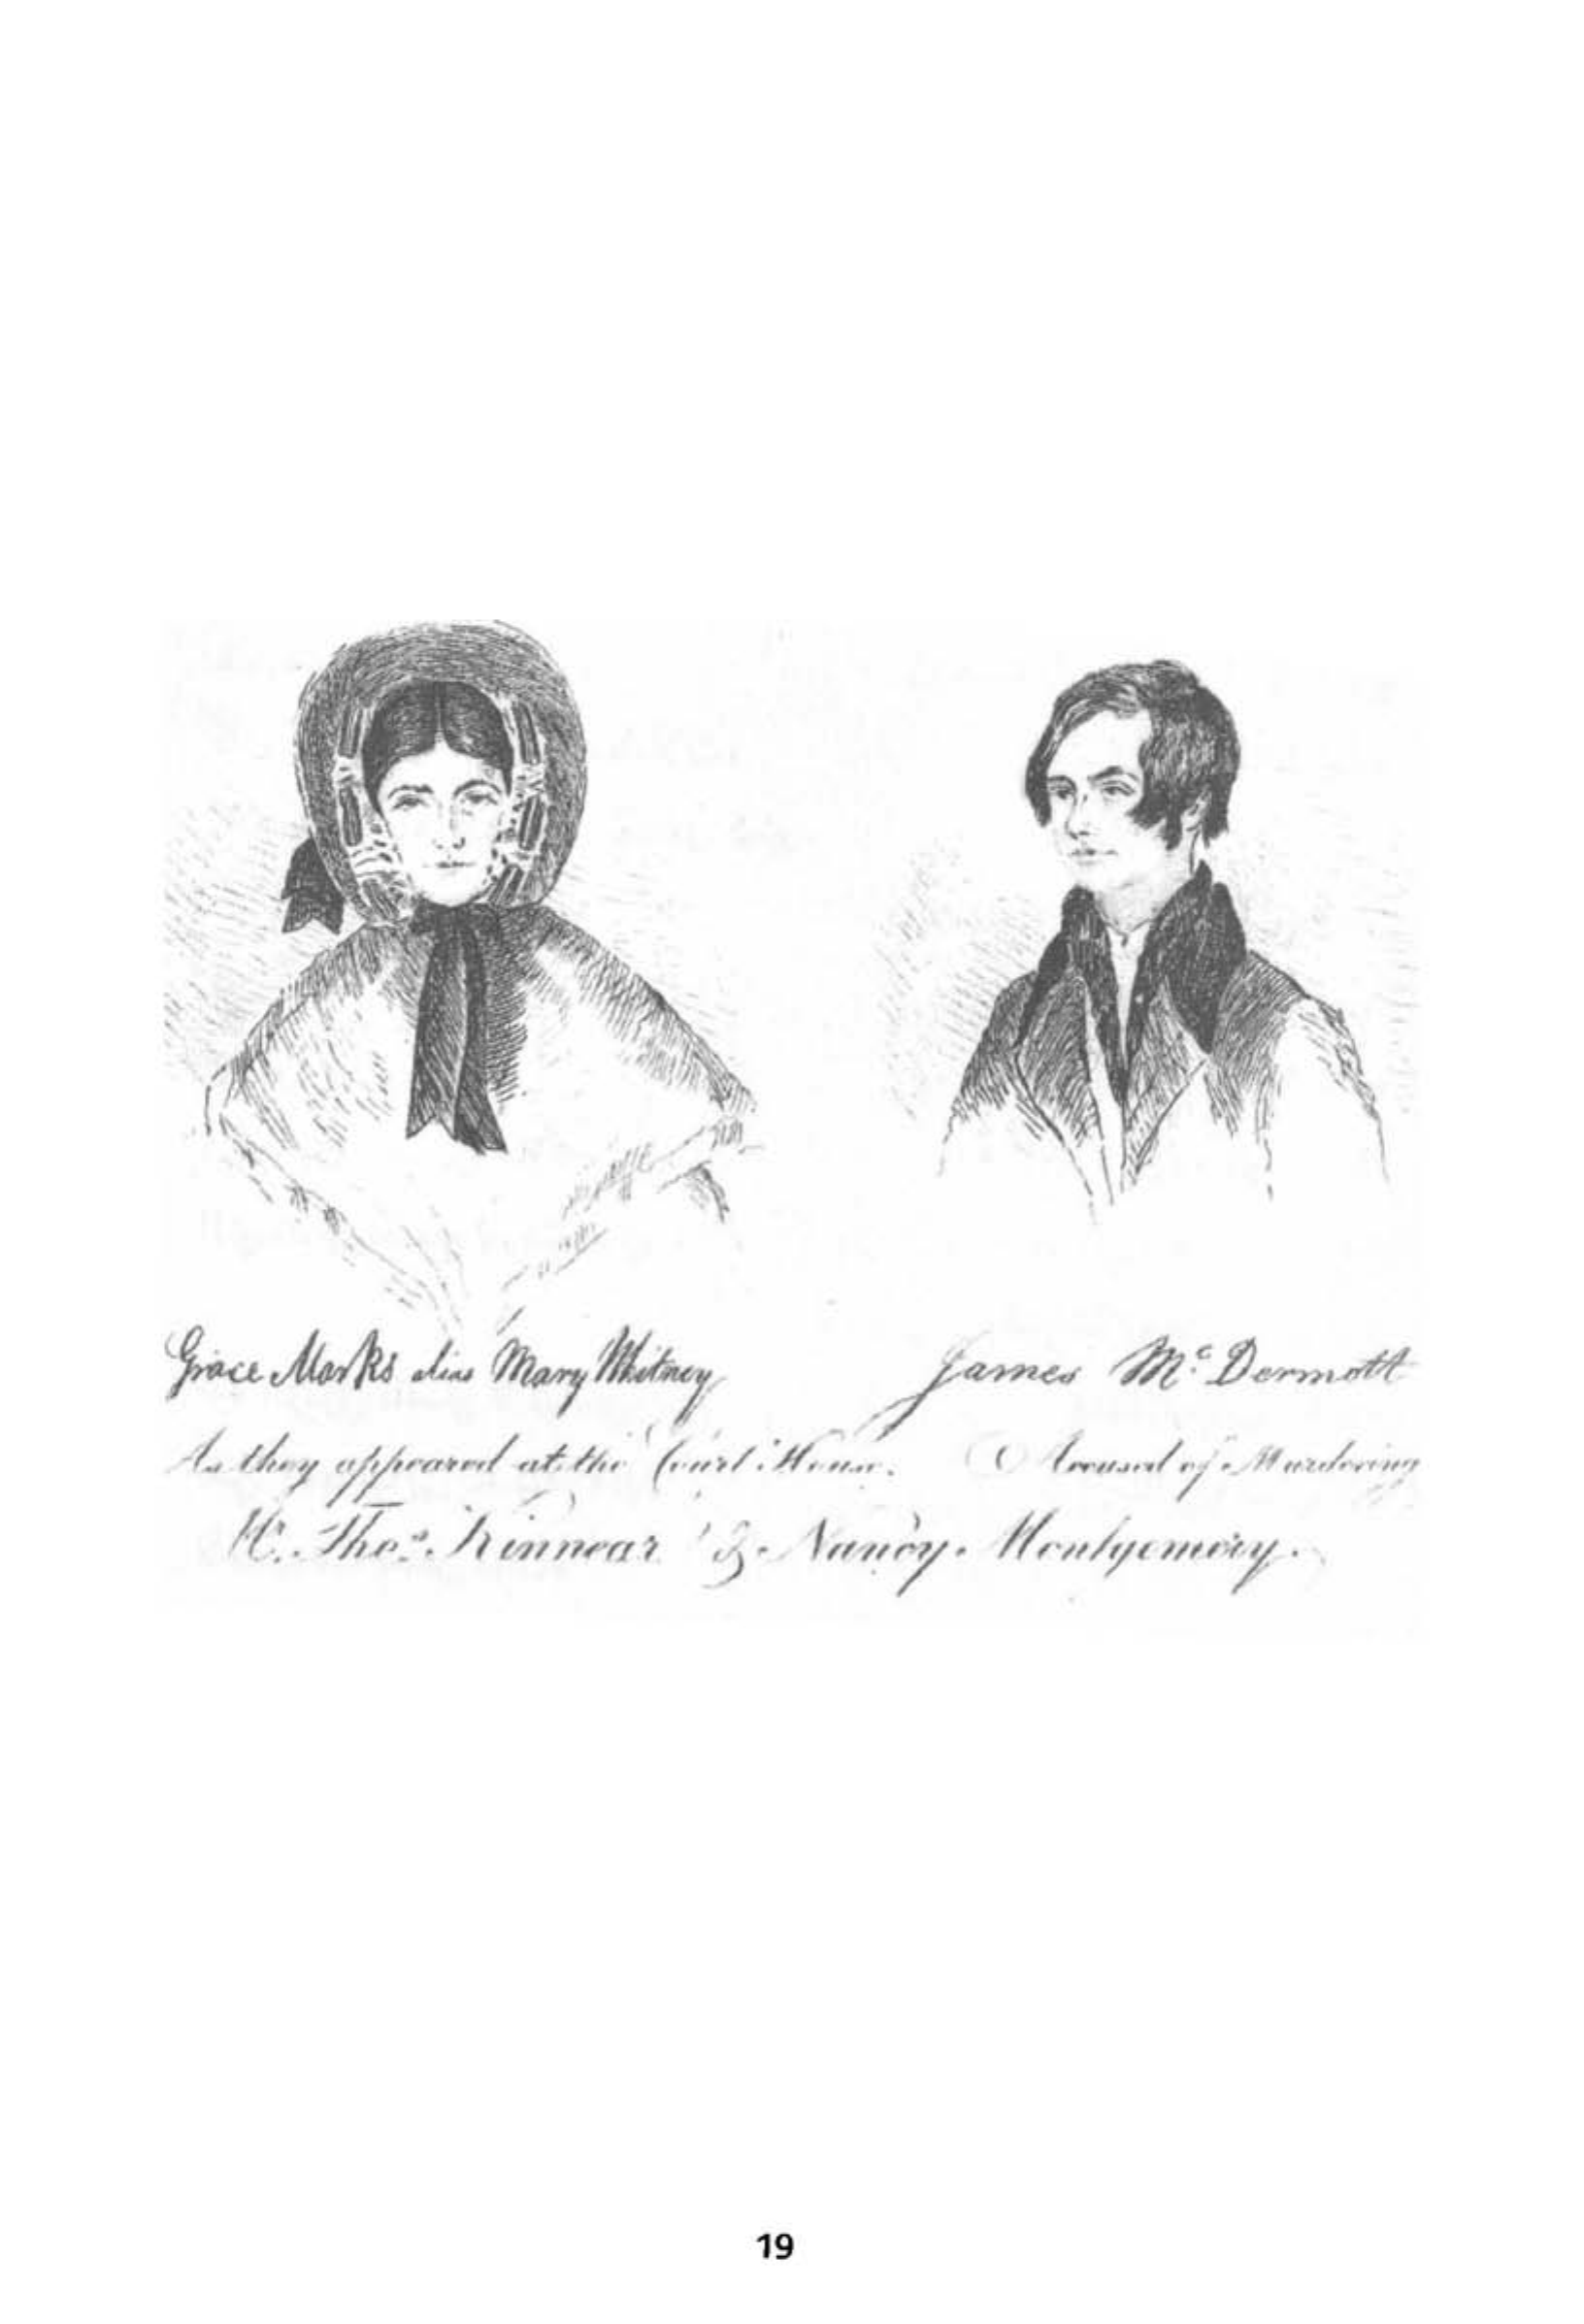 Grace Marks alias Mary Whitney
James Mc Dermott
As they appeared at the Court House. Accused of Murdering
Mr. Thos. Kinnear & Nancy Montgomery.
19